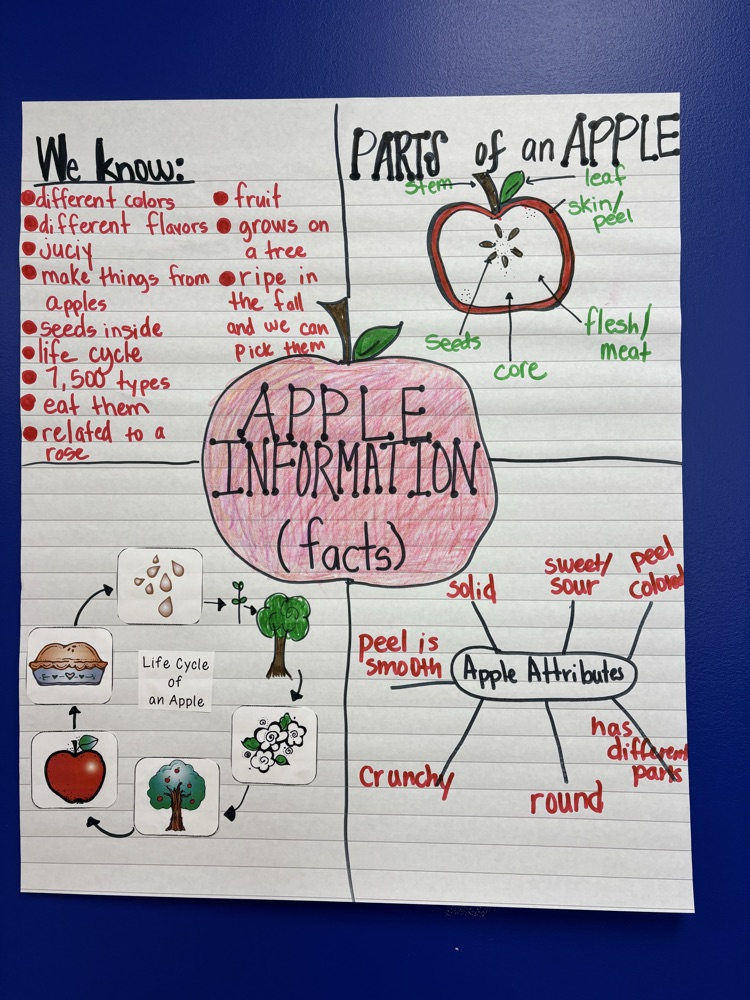 We know:
different colors
different flavors
juciy
make things from
apples
seeds inside
life cycle
7,500 types
eat them
related to a
rose
fruit
grows on
a tree
ripe in
the fall
and we can
pick them
PARTS of an APPLE
stem
leaf
skin/
peel
seeds
core
flesh/
meat
APPLE
INFORMATION
(facts)
Life Cycle
of
an Apple
solid
sweet/
sour
peel
colored
peel is
smooth
Apple Attributes
crunchy
round
has
different
parts